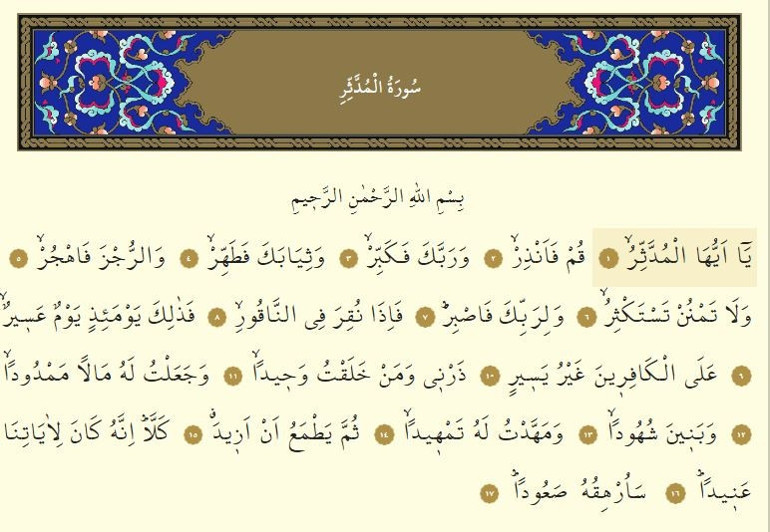 سُورَةُ الْمُدَّثِّرِ
بِسْمِ اللهِ الرَّحْمٰنِ الرَّحٖيمِ
يَٓا اَيُّهَا الْمُدَّثِّرُۙ ١ قُمْ فَاَنْذِرْۙ ٢ وَرَبَّكَ فَكَبِّرْۙ ٣ وَثِيَابَكَ فَطَهِّرْۙ ٤ وَالرُّجْزَ فَاهْجُرْۙ ٥
وَلَا تَمْنُنْ تَسْتَكْثِرُۙ ٦ وَلِرَبِّكَ فَاصْبِرْؕ ٧ فَاِذَا نُقِرَ فِى النَّاقُورِۙ ٨ فَذٰلِكَ يَوْمَئِذٍ يَوْمٌ عَسٖيرٌۙ
٩ عَلَى الْكَافِرٖينَ غَيْرُ يَسٖيرٍ ١٠ ذَرْنٖى وَمَنْ خَلَقْتُ وَحٖيداًۙ ١١ وَجَعَلْتُ لَهُ مَالاً مَمْدُوداًۙ
١٢ وَبَنٖينَ شُهُوداًۙ ١٣ وَمَهَّدْتُ لَهُ تَمْهٖيداًۙ ١٤ ثُمَّ يَطْمَعُ اَنْ اَزٖيدَۗ ١٥ كَلَّاؕ اِنَّهُ كَانَ لِاٰيَاتِنَا
عَنٖيداًؕ ١٦ سَاُرْهِقُهُ صَعُوداًؕ ١٧